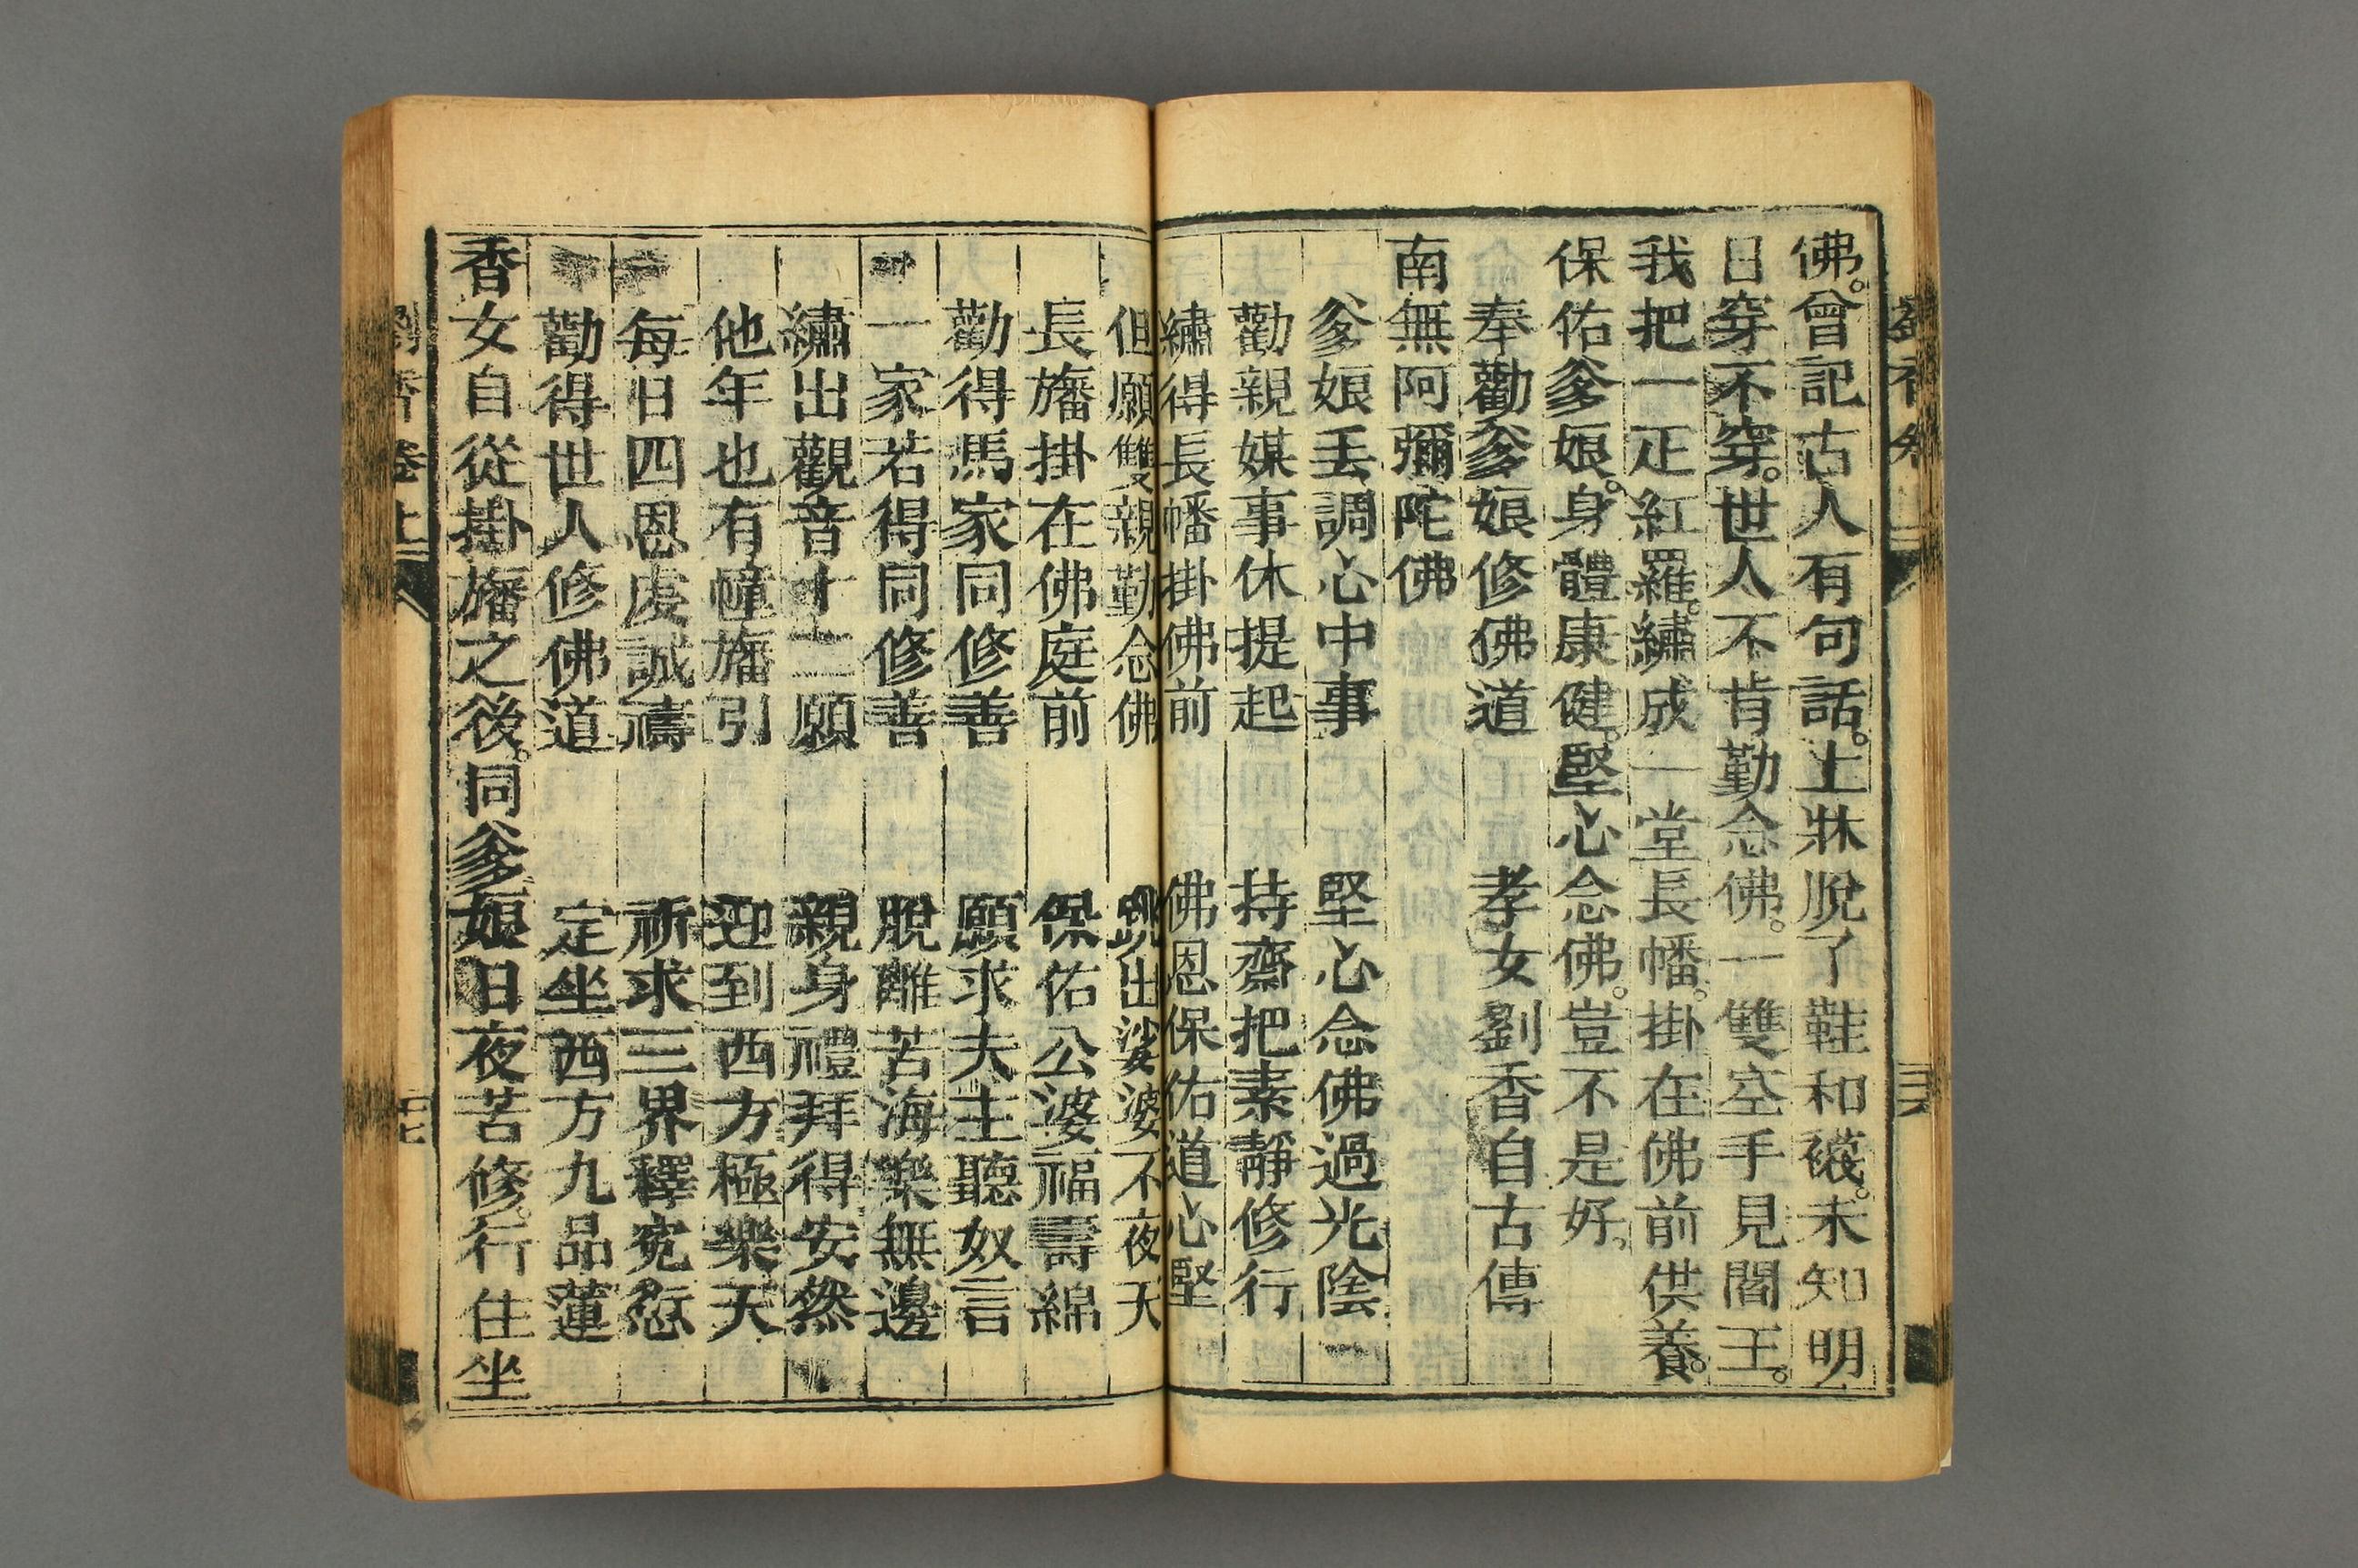 佛。曾記古人有句話。上牀脫了鞋和襪。未知明
日穿不穿。世人不肯勤念佛。一雙空手見閻王。
我把一疋紅羅。繡成一堂長幡。掛在佛前供養。
保佑爹娘。身體康健。堅心念佛。豈不是好。
奉勸爹娘修佛道 孝女劉香自古傳
南無阿彌陀佛
爹娘丟調心中事 堅心念佛過光陰
勸親媒事休提起 持齋把素靜修行
繡得長幡掛佛前 佛恩保佑道心堅
但願雙親勤念佛 跳出娑婆不夜天
長旛掛在佛庭前 保佑公婆福壽綿
勸得馬家同修善 願求夫主聽奴言
一家若得同修善 脫離苦海樂無邊
繡出觀音十二願 親身禮拜得安然
他年也有幢旛引 迎到西方極樂天
每日四恩虔誠禱 祈求三界釋寃愆
勸得世人修佛道 定坐西方九品蓮
香女自從掛旛之後。同爹娘日夜苦修。行住坐
劉香卷上